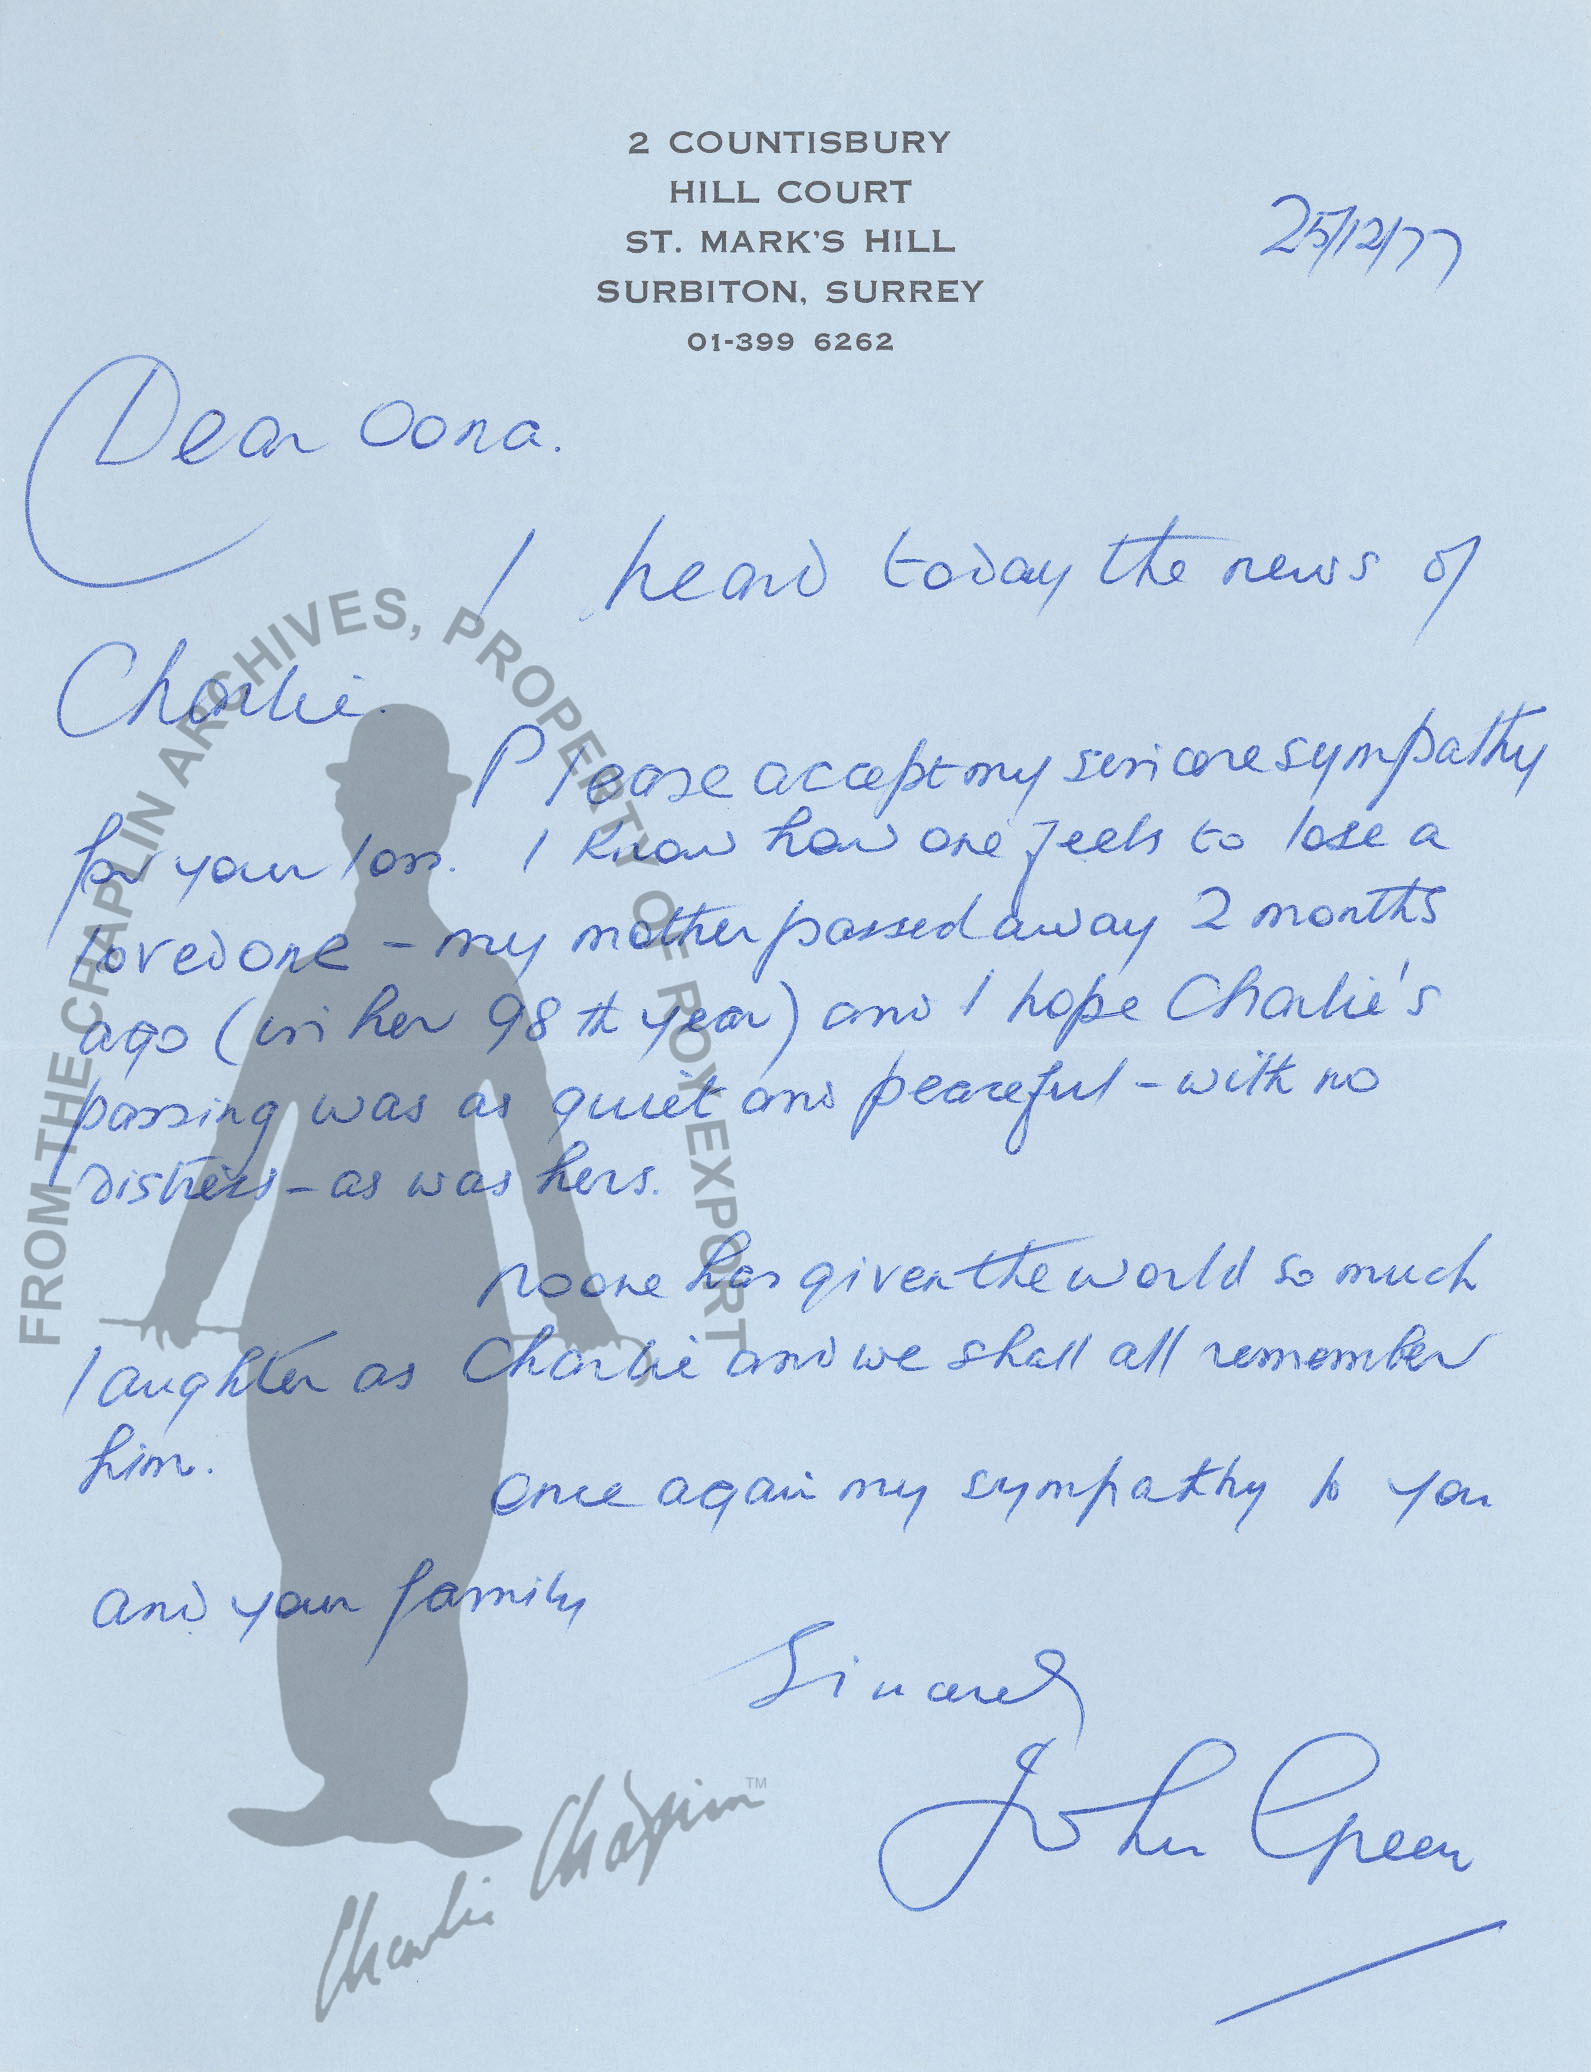 2 COUNTISBURY
HILL COURT
ST. MARK'S HILL
SURBITON, SURREY
01-399 6262
25/12/77
Dear Oona.
I heard today the news of
Charlie.
Please accept my sincere sympathy
for your loss. I know how one feels to lose a
loved one – my mother passed away 2 months
ago (in her 98th year) and I hope Charlie's
passing was as quiet and peaceful – with no
distress – as was hers.
No one has given the world so much
laughter as Charlie and we shall all remember
him.
Once again my sympathy to you
and your family
Sincerely
John Green
FROM THE CHAPLIN ARCHIVES, PROPERTY OF ROY EXPORT
Charlie Chaplin™